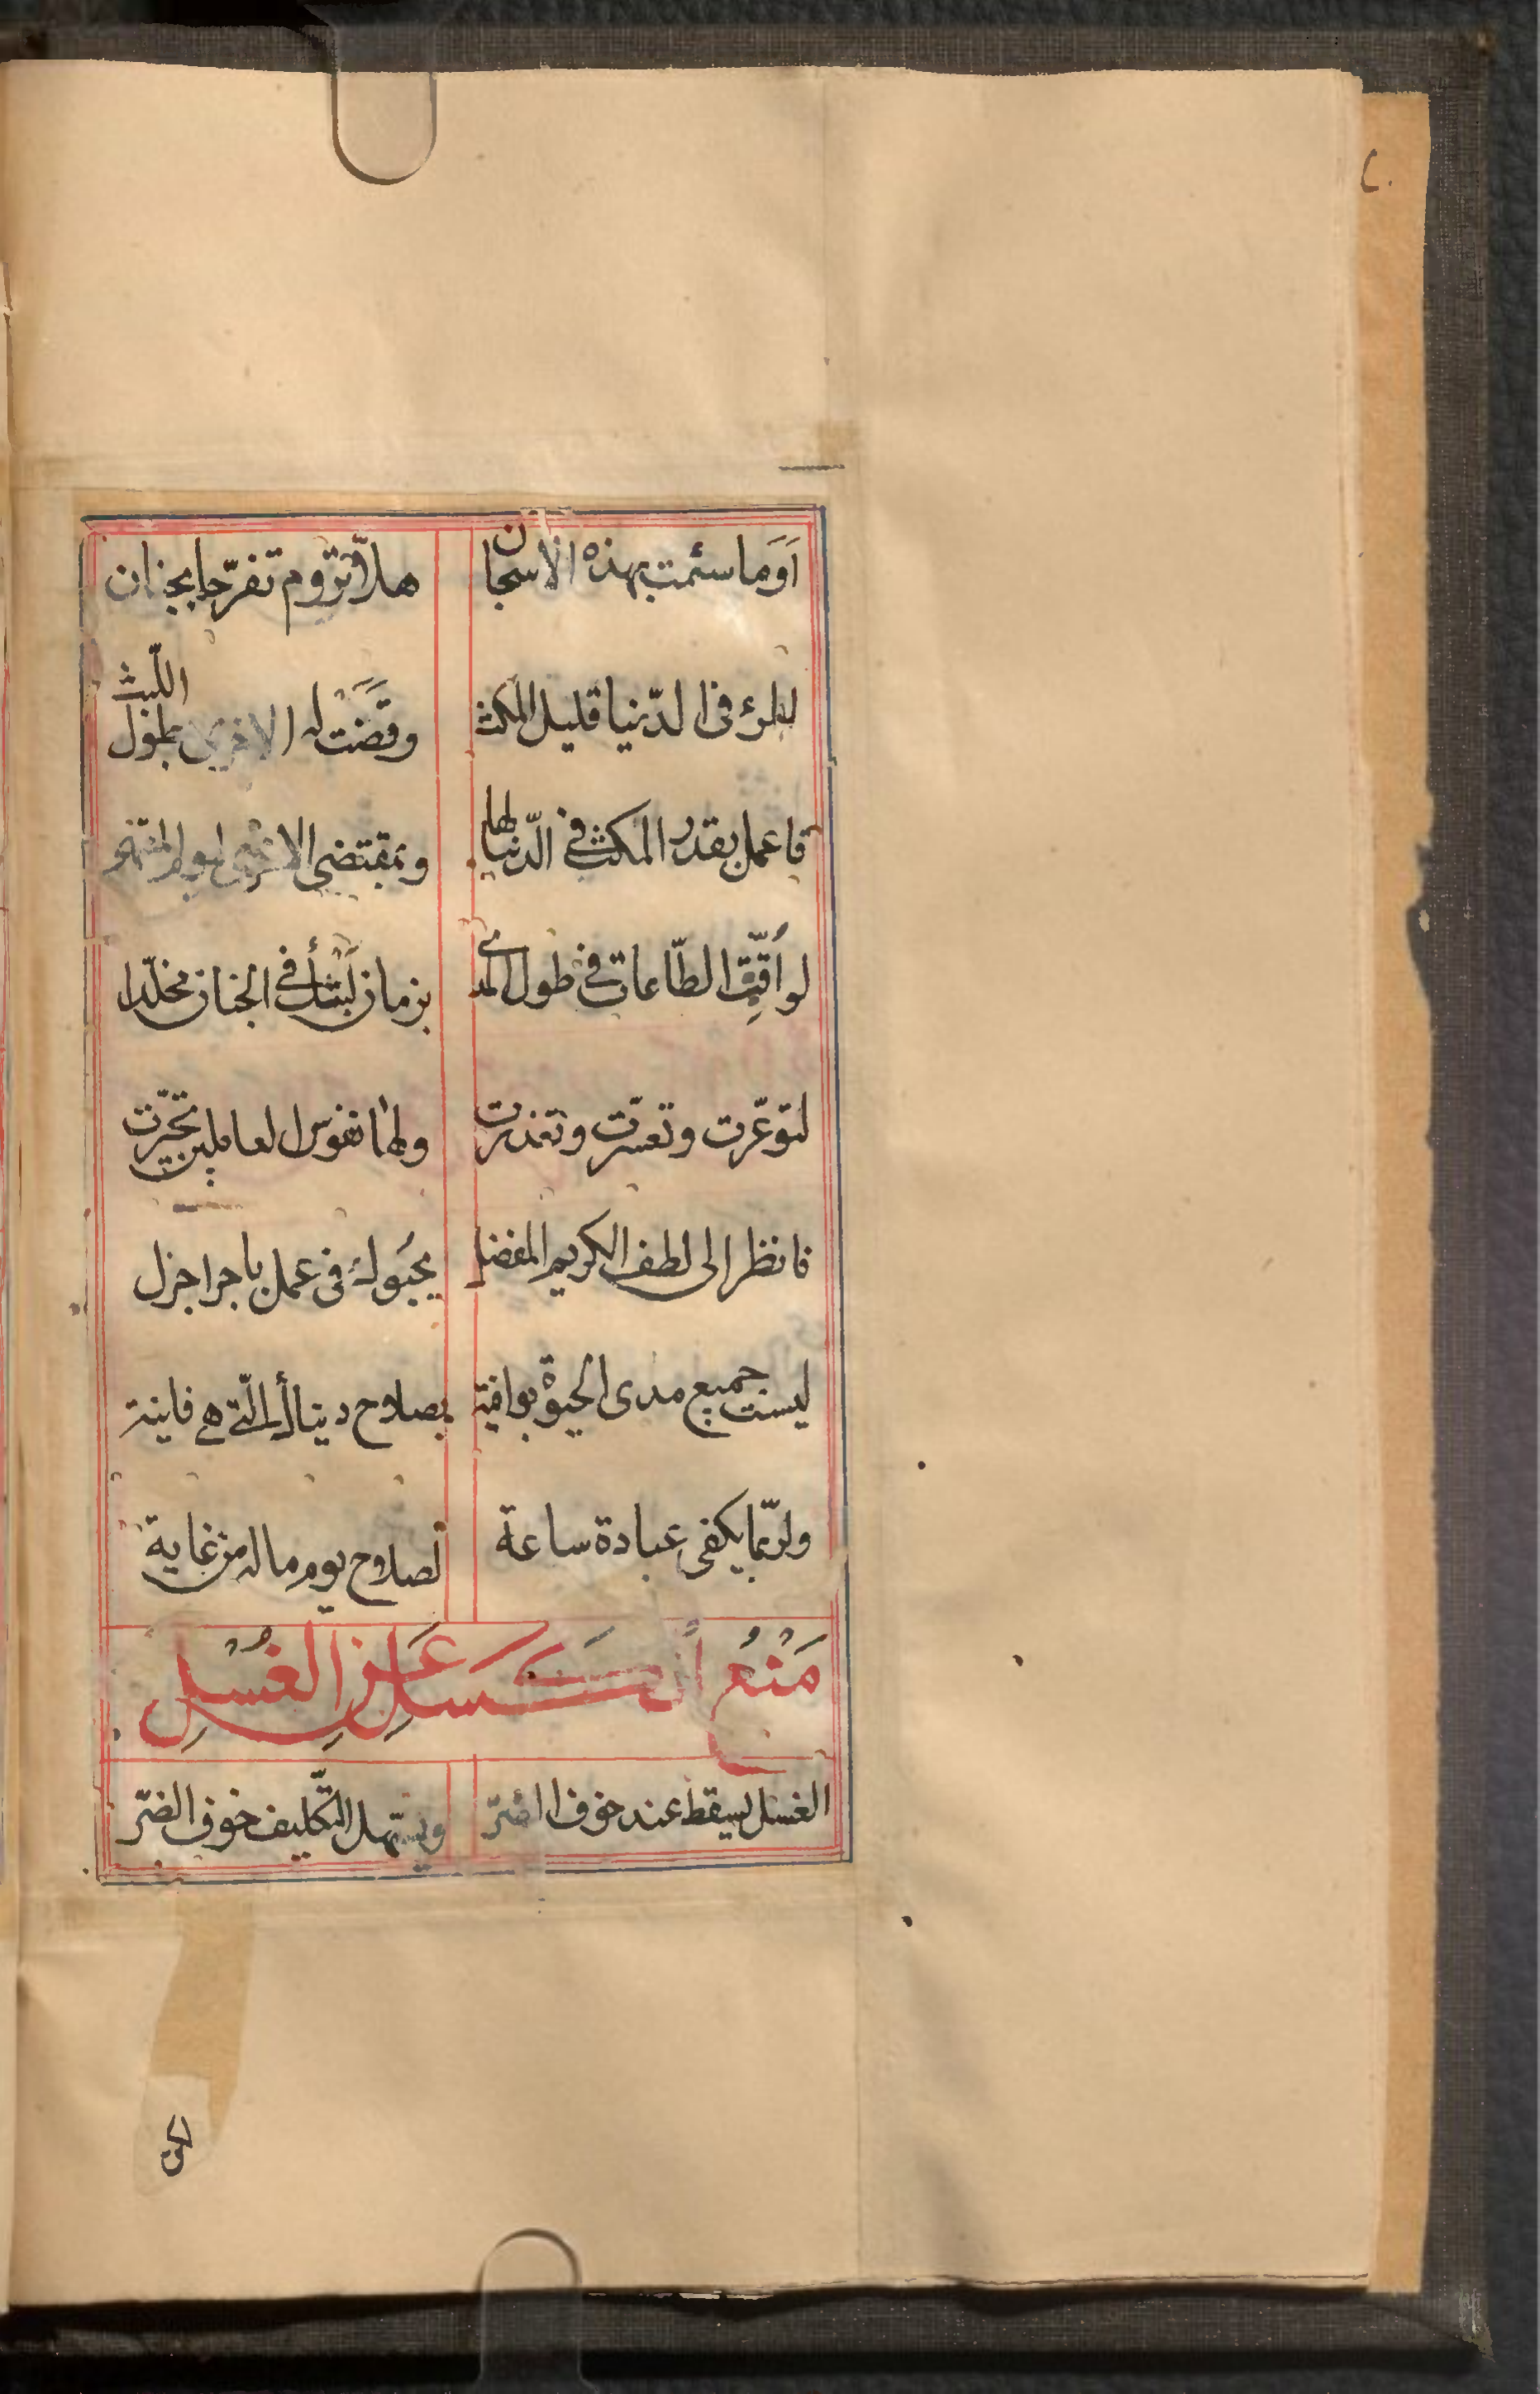 أَوَما سئمت بهذه الاسجان هلّا تروم تفرّجا بجنان
المرء فى الدّنيا قليل المكث وقَضَت له الاخرى بطول اللّبث
فاعمل بقدر المكث فى الدّنيا لها وبمقتضى الاخرى
لو أقّتِ الطّاعات فى طول المدى بزمان لَبْثك فى الجنان مخلّدا
لتوعّرت وتعسّرت وتعذرت ولها نفوس العاملين تحيّرت
فانظر الى لطف الكريم المفضل يحبُوك فى عمل باجر اجزل
ليست جميع مدى الحيوة بوافية بصلاح دنياك الّتى هى فانية
ولربّما يكفى عبادة ساعة لصلاح يوم ماله من غاية
مَنْعُ أن تَكَسَّل عَنِ الغُسْلِ
الغسل يسقط عند خوف الضرّ ويسهل التّكليف خوف الضرّ